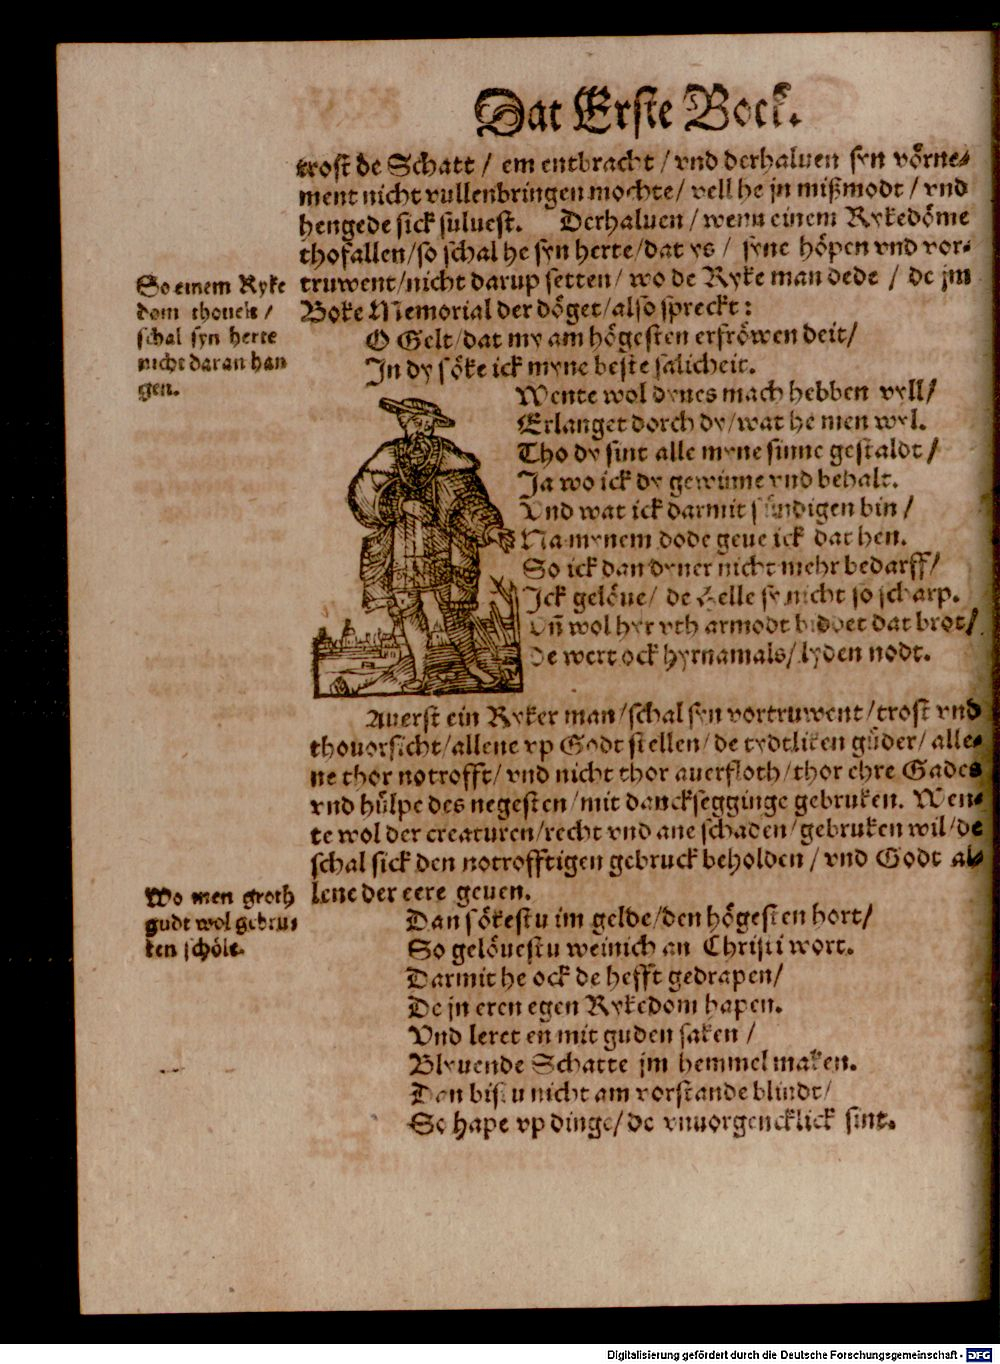 Dat Erste Bock.
trost de Schatt / em entbracht / vnd derhaluen syn vörne⸗
ment nicht vullenbringen mochte / vell he jn mißmodt / vnd
hengede sick suluest. Derhaluen / wenn einem Rykedöme
thofallen / so schal he syn herte / dat ys / syne höpen vnd vor⸗
truwent / nicht darup setten / wo de Ryke man dede / de jm
Boke Memorial der döget / also spreckt:
So einem Ryke
dom thouelt /
schal syn herte
nicht daran han
gen.
O Gelt / dat my am högesten erfröwen deit /
Jn dy söke ick myne beste salicheit.
Wente wol dynes mach hebben vyll /
Erlanget dorch dy / wat he men wyl.
Tho dy sint alle myne sinne gestaldt /
Ja wo ick dy gewinne vnd behalt.
Vnd wat ick darmit sündigen bin /
Na mynem dode geue ick dat hen.
So ick dan dyner nicht mehr bedarff /
Jck gelöue / de Helle sy nicht so scharp.
Vñ wol hyr vth armodt biddet dat brot /
De wert ock hyrnamals / lyden nodt.
Auerst ein Ryker man / schal syn vortruwent / trost vnd
thouorsicht / allene vp Godt stellen / de tydtliken güder / alle⸗
ne thor notrofft / vnd nicht thor auerfloth / thor ehre Gades
vnd hülpe des negesten / mit dancksegginge gebruken. Wen⸗
te wol der creaturen / recht vnd ane schaden / gebruken wil / de
schal sick den notrofftigen gebruck beholden / vnd Godt al⸗
lene der eere geuen.
Wo men groth
gudt wol gebru⸗
ken schöle.
Dan sökestu im gelde / den högesten hort /
So gelöuestu weinich an Christi wort.
Darmit he ock de hefft gedrapen /
De jn eren egen Rykedom hapen.
Vnd leret en mit guden saken /
Blyuende Schatte jm hemmel maken.
Dan bistu nicht am vorstande blindt /
So hape vp dinge / de vnuorgencklick sint.
Digitalisierung gefördert durch die Deutsche Forschungsgemeinschaft - DFG